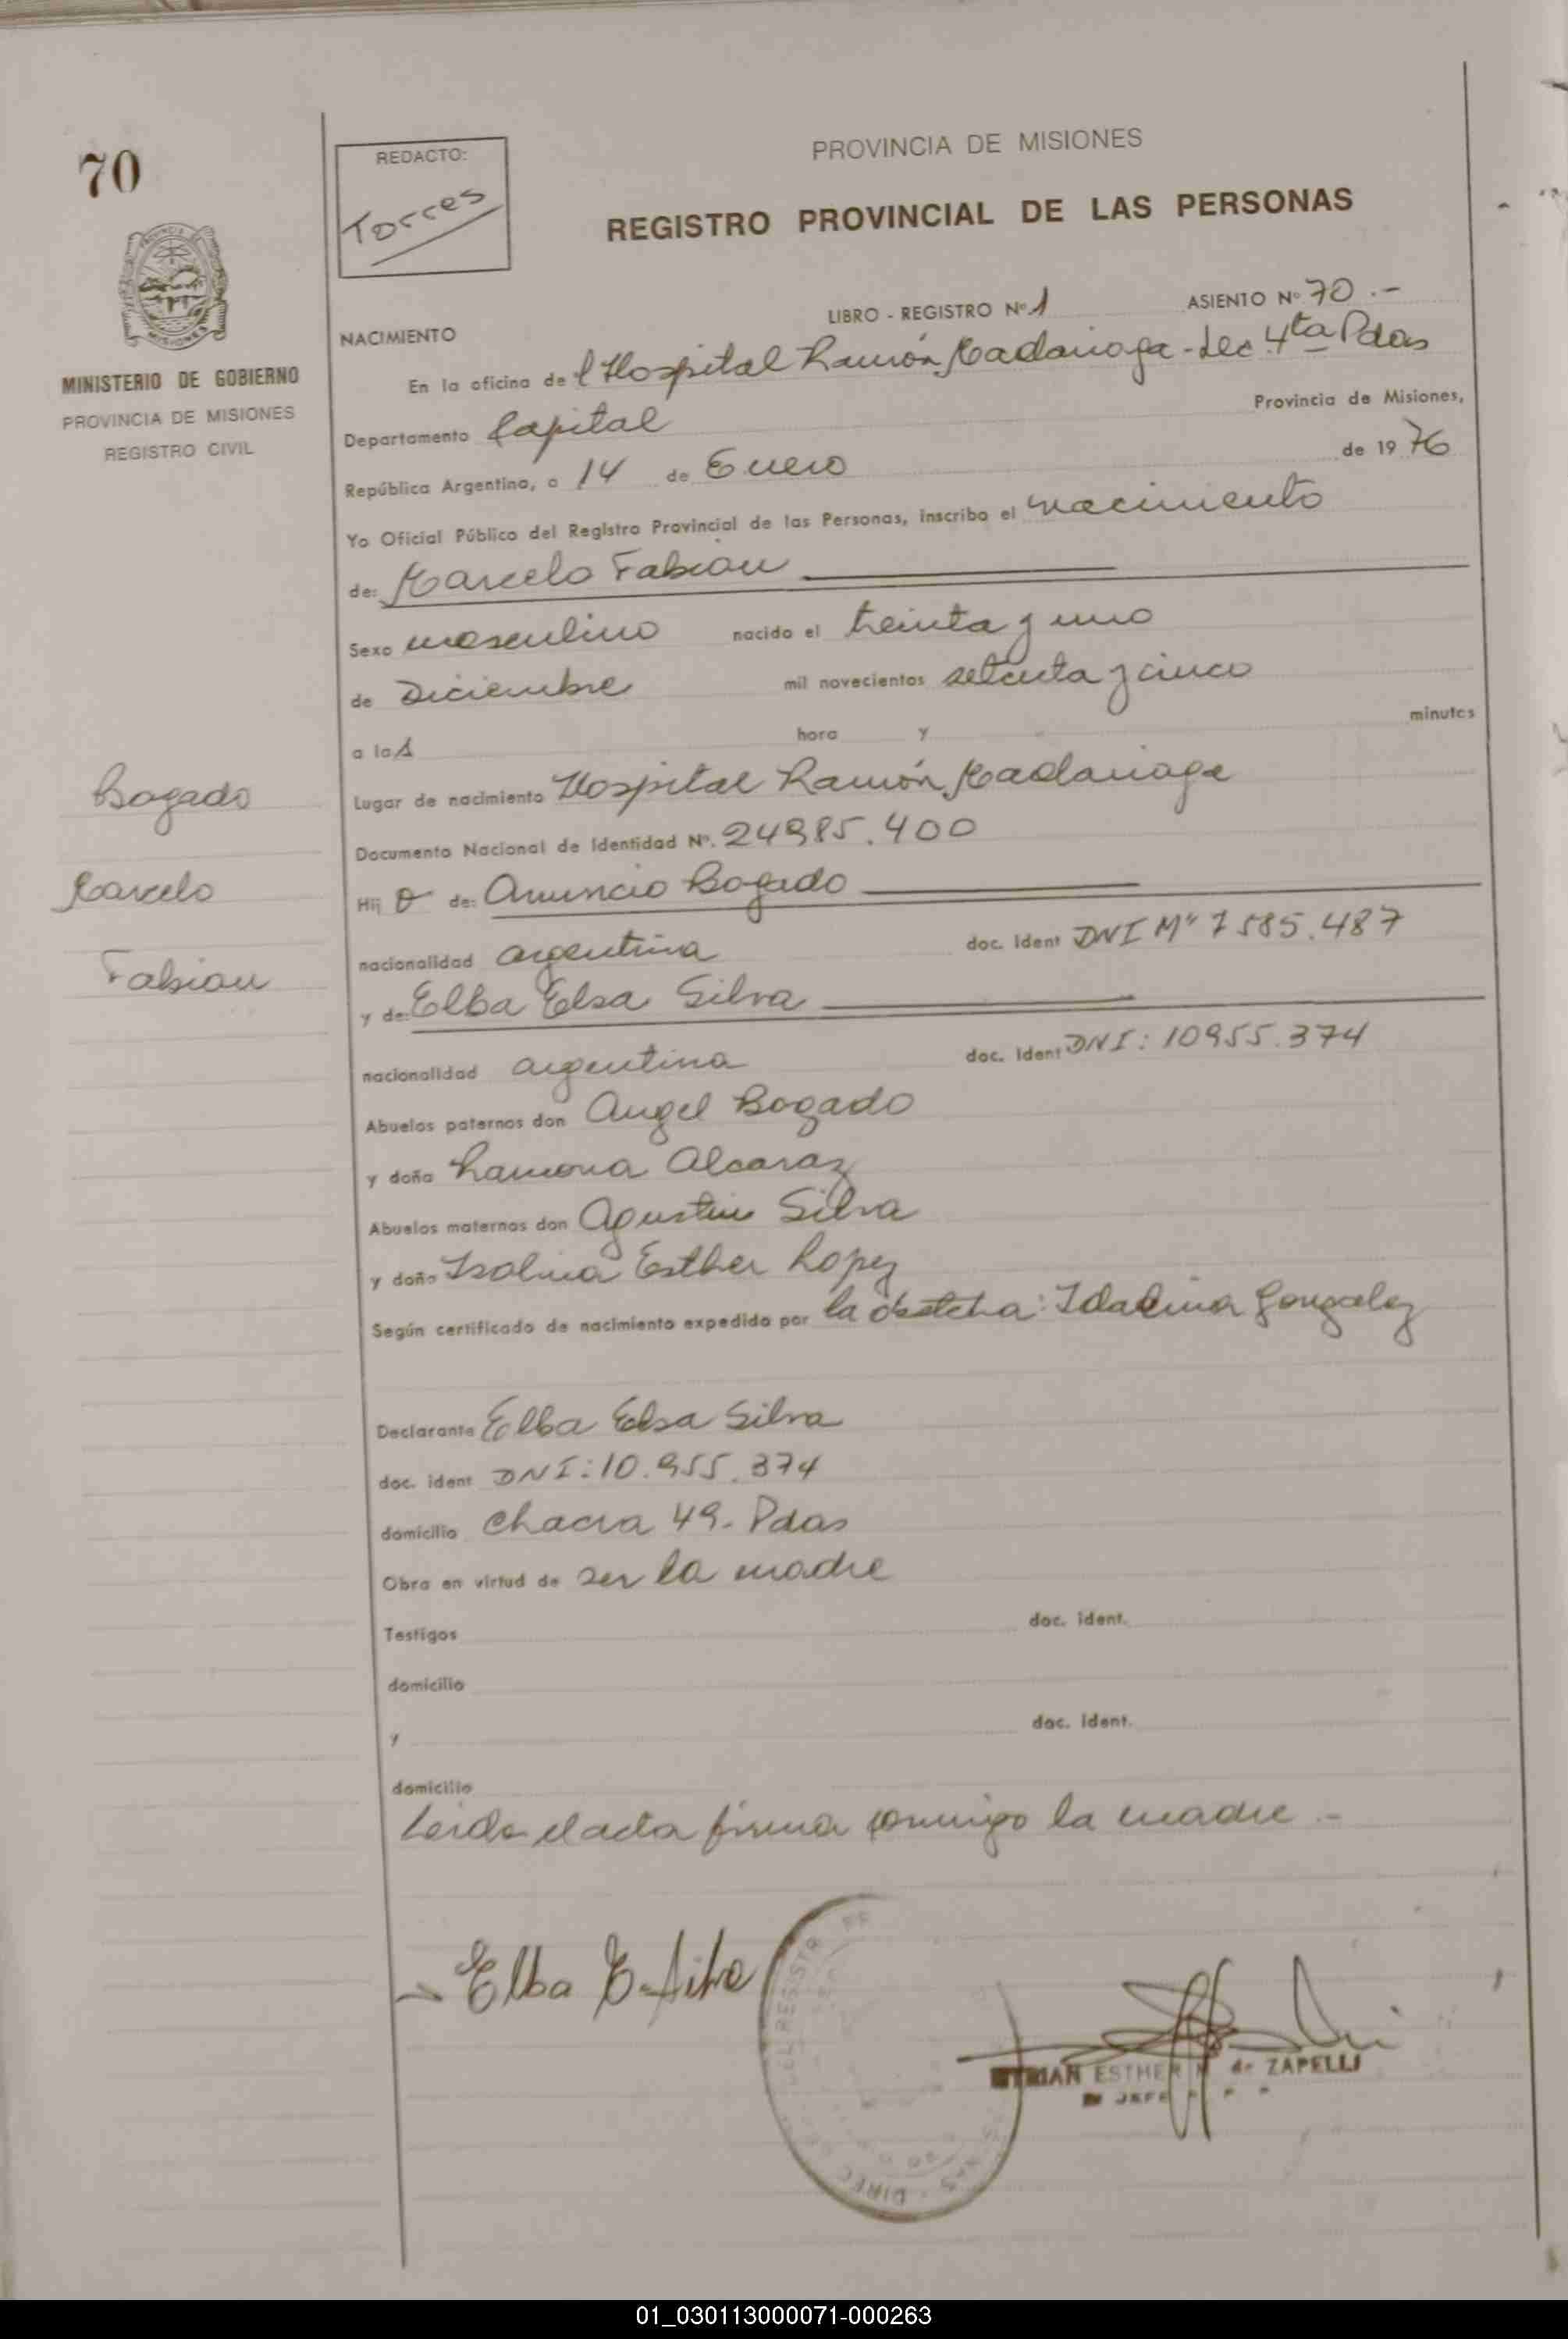 70
REDACTO:
Torres
PROVINCIA DE MISIONES
REGISTRO PROVINCIAL DE LAS PERSONAS
MINISTERIO DE GOBIERNO
PROVINCIA DE MISIONES
REGISTRO CIVIL
LIBRO - REGISTRO Nº 1 ASIENTO Nº 70 .-
NACIMIENTO
En la oficina de l Hospital Ramón Madariaga - Sec 4ta Pdas
Departamento Capital Provincia de Misiones,
República Argentina, a 14 de Enero de 1976
Yo Oficial Público del Registro Provincial de las Personas, inscribo el nacimiento
de: Marcelo Fabian
Sexo masculino nacido el treinta y uno
de Diciembre mil novecientos setenta y cinco
a las hora y minutos
Lugar de nacimiento Hospital Ramón Madariaga
Documento Nacional de Identidad Nº. 24985.400
Hij o de: Anuncio Bogado
nacionalidad argentina doc. ident DNI Mº 7585.487
y de: Elba Elsa Silva
nacionalidad argentina doc. ident DNI: 10955.374
Abuelos paternos don Angel Bogado
y doña Ramona Alcaraz
Abuelos maternos don Agustin Silva
y doña Isolina Esther Lopez
Según certificado de nacimiento expedido por la obstetra: Idalina Gonzalez
Declarante Elba Elsa Silva
doc. ident DNI: 10.955.374
domicilio Chacra 49- Pdas
Obra en virtud de ser la madre
Testigos doc. ident.
domicilio
y doc. ident.
domicilio
Leida el acta firma conmigo la madre .-
Bogado
Marcelo
Fabian
Elba E. Silva
ESTHER de ZAPELLI
JEFE
01_030113000071-000263